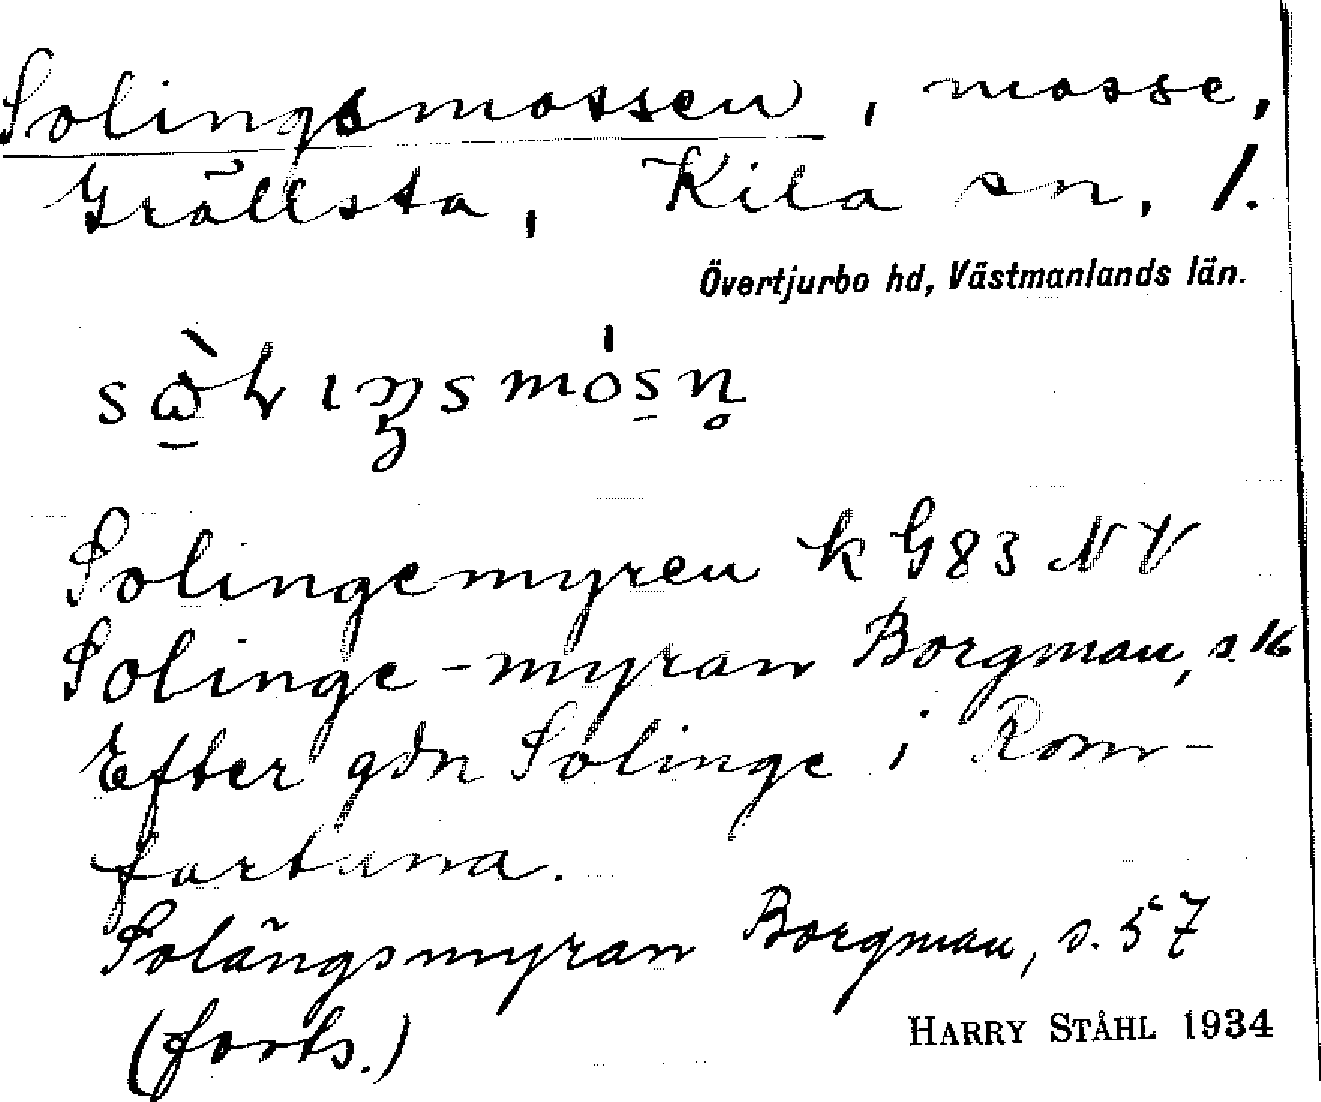 Solingsmossen, mosse,
Grällsta, Kila sn. 1.
Övertjurbo hd, Västmanlands län.
Solingemyren k G83 NV
Solinge-myran Borgman, s. 16
Efter gdn Solinge i Rom-
fartuna.
Solängsmyran Borgman, s. 57
(forts.)
HARRY STÅHL 1934